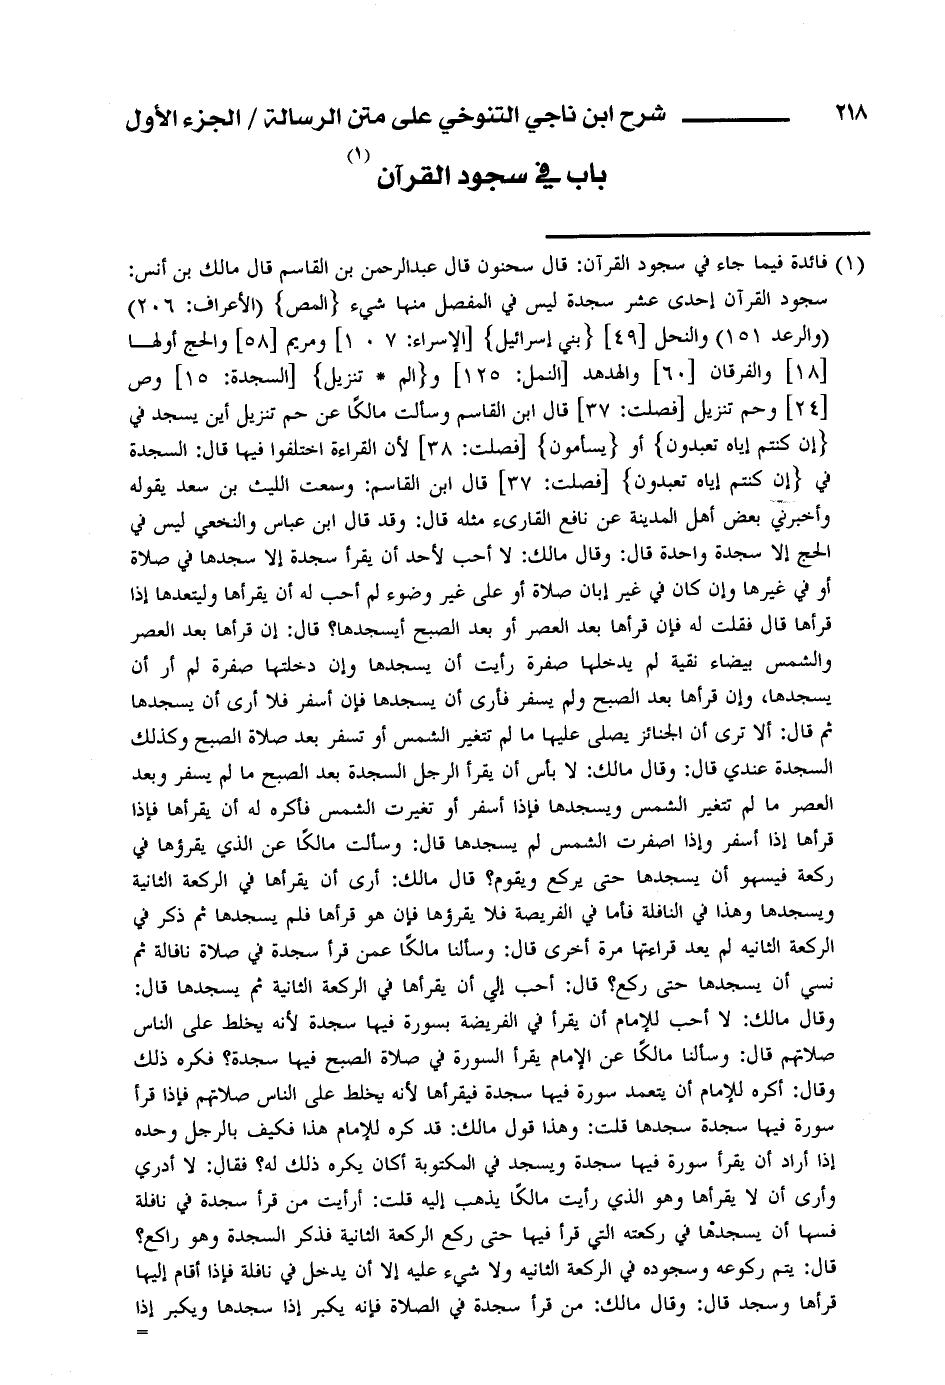 ٢١٨ ــــــــــــ شرح ابن ناجي التنوخي على متن الرسالة / الجزء الأول
باب في سجود القرآن (١)
(١) فائدة فيما جاء في سجود القرآن: قال سحنون قال عبدالرحمن بن القاسم قال مالك بن أنس:
سجود القرآن إحدى عشر سجدة ليس في المفصل منها شيء {المص} (الأعراف: ٢٠٦)
(والرعد ١٥١) والنحل [٤٩] {بني إسرائيل} [الإسراء: ٧ ٠ ١] ومريم [٥٨] والحج أولهـا
[١٨] والفرقان [٦٠] والهدهد [النمل: ١٢٥] و{الم * تنزيل} [السجدة: ١٥] وص
[٢٤] وحم تنزيل [فصلت: ٣٧] قال ابن القاسم وسألت مالكًا عن حم تنزيل أين يسجد في
{إن كنتم إياه تعبدون} أو {يسأمون} [فصلت: ٣٨] لأن القراءة اختلفوا فيها قال: السجدة
في {إن كنتم إياه تعبدون} [فصلت: ٣٧] قال ابن القاسم: وسمعت الليث بن سعد يقوله
وأخبرني بعض أهل المدينة عن نافع القارىء مثله قال: وقد قال ابن عباس والنخعي ليس في
الحج إلا سجدة واحدة قال: وقال مالك: لا أحب لأحد أن يقرأ سجدة إلا سجدها في صلاة
أو في غيرها وإن كان في غير إبان صلاة أو على غير وضوء لم أحب له أن يقرأها وليتعدها إذا
قرأها قال فقلت له فإن قرأها بعد العصر أو بعد الصبح أيسجدها؟ قال: إن قرأها بعد العصر
والشمس بيضاء نقية لم يدخلها صفرة رأيت أن يسجدها وإن دخلتها صفرة لم أر أن
يسجدها، وإن قرأها بعد الصبح ولم يسفر فأرى أن يسجدها فإن أسفر فلا أرى أن يسجدها
ثم قال: ألا ترى أن الجنائز يصلى عليها ما لم تتغير الشمس أو تسفر بعد صلاة الصبح وكذلك
السجدة عندي قال: وقال مالك: لا بأس أن يقرأ الرجل السجدة بعد الصبح ما لم يسفر وبعد
العصر ما لم تتغير الشمس ويسجدها فإذا أسفر أو تغيرت الشمس فأكره له أن يقرأها فإذا
قرأها إذا أسفر وإذا اصفرت الشمس لم يسجدها قال: وسألت مالكًا عن الذي يقرؤها في
ركعة فيسهو أن يسجدها حتى يركع ويقوم؟ قال مالك: أرى أن يقرأها في الركعة الثانية
ويسجدها وهذا في النافلة فأما في الفريصة فلا يقرؤها فإن هو قرأها فلم يسجدها ثم ذكر في
الركعة الثانيه لم يعد قراءتها مرة أخرى قال: وسألنا مالكًا عمن قرأ سجدة في صلاة نافالة ثم
نسي أن يسجدها حتى ركع؟ قال: أحب إلي أن يقرأها في الركعة الثانية ثم يسجدها قال:
وقال مالك: لا أحب للإمام أن يقرأ في الفريضة بسورة فيها سجدة لأنه يخلط على الناس
صلاتهم قال: وسألنا مالكًا عن الإمام يقرأ السورة في صلاة الصبح فيها سجدة؟ فكره ذلك
وقال: أكره للإمام أن يتعمد سورة فيها سجدة فيقرأها لأنه يخلط على الناس صلاتهم فإذا قرأ
سورة فيها سجدة سجدها قلت: وهذا قول مالك: قد كره للإمام هذا فكيف بالرجل وحده
إذا أراد أن يقرأ سورة فيها سجدة ويسجد في المكتوبة أكان يكره ذلك له؟ فقال: لا أدري
وأرى أن لا يقرأها وهو الذي رأيت مالكًا يذهب إليه قلت: أرأيت من قرأ سجدة في نافلة
فسها أن يسجدها في ركعته التي قرأ فيها حتى ركع الركعة الثانية فذكر السجدة وهو راكع؟
قال: يتم ركوعه وسجوده في الركعة الثانيه ولا شيء عليه إلا أن يدخل في نافلة فإذا أقام إليها
قرأها وسجد قال: وقال مالك: من قرأ سجدة في الصلاة فإنه يكبر إذا سجدها ويكبر إذا
=